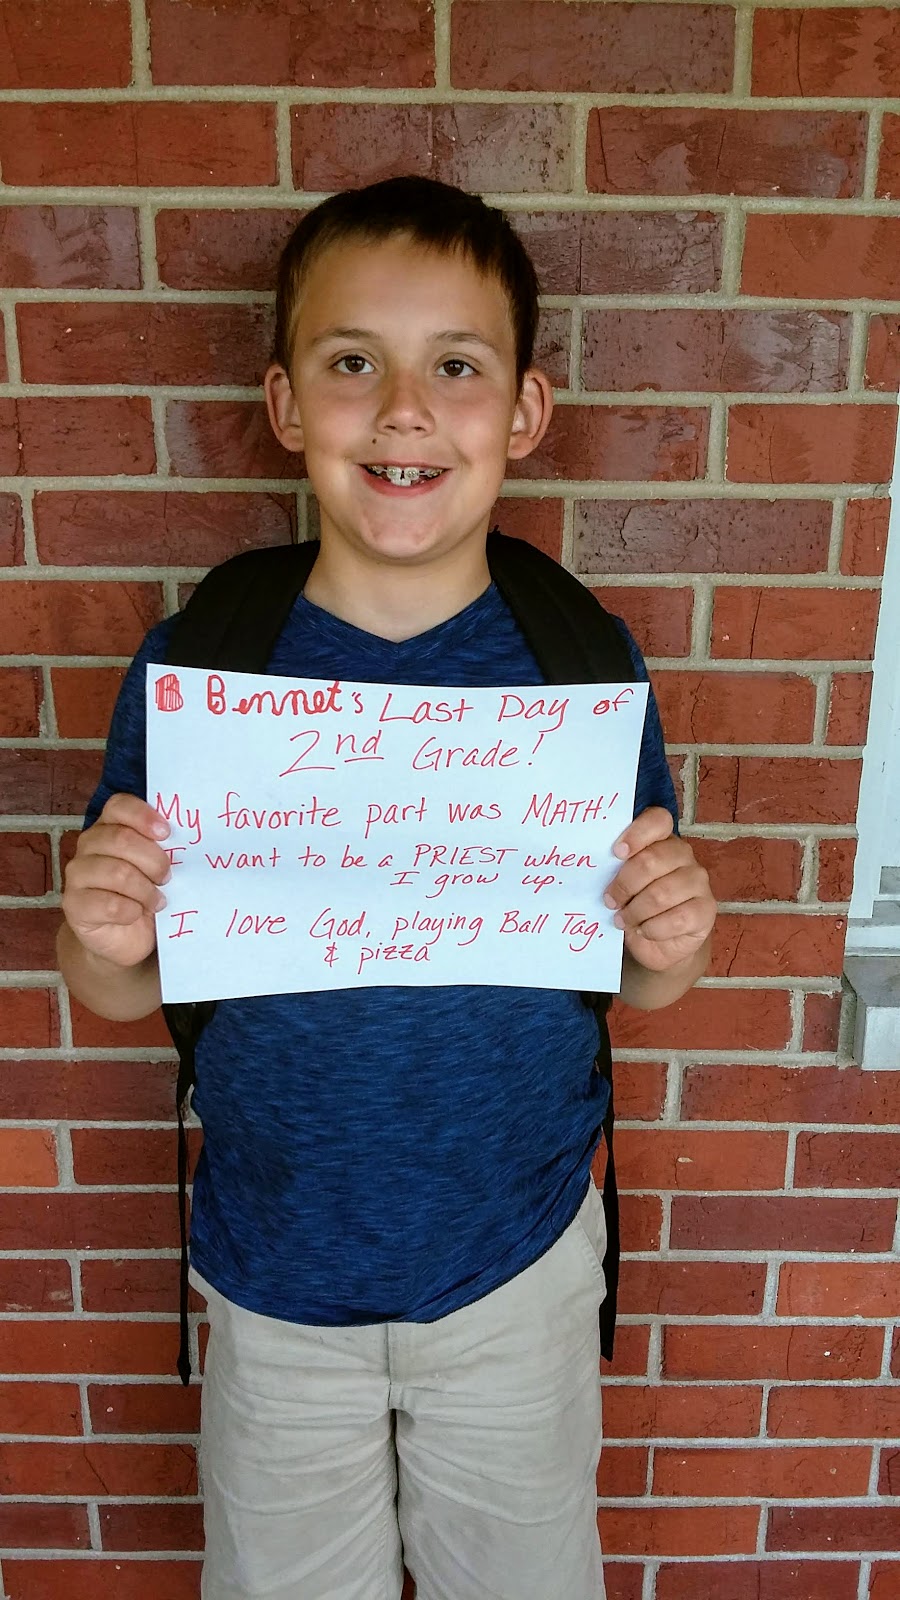 B Bennet's Last Day of
2nd Grade!
My favorite part was MATH!
I want to be a PRIEST when
I grow up.
I love God, playing Ball Tag,
& pizza